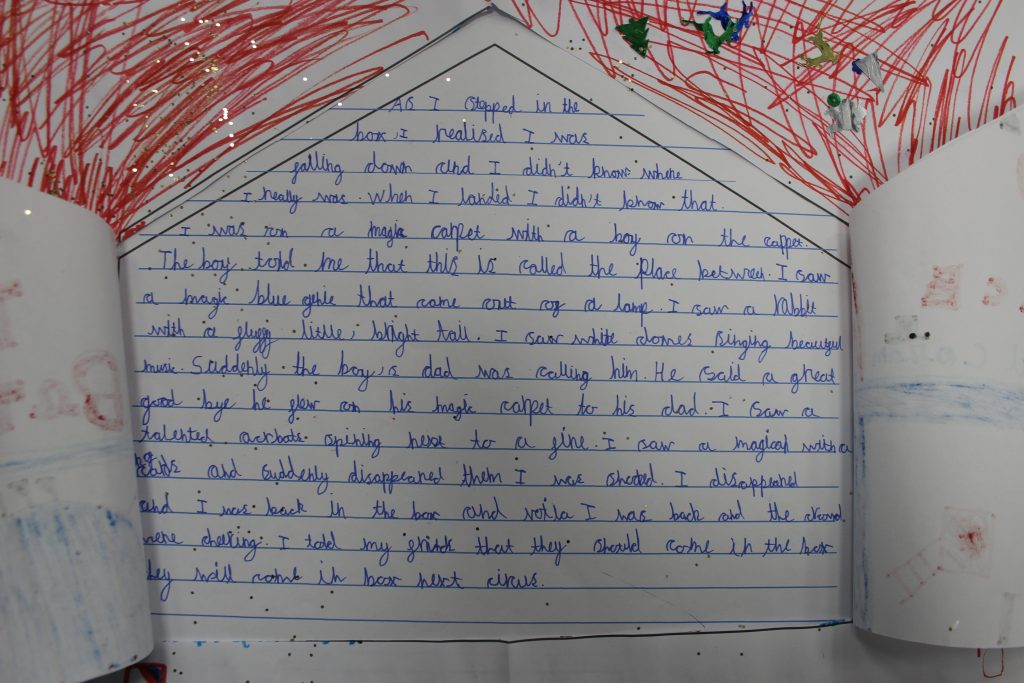 As I stopped in the
box, I realised I was
falling down and I didn't know where
I really was. When I landed I didn't know that
I was on a magic carpet with a boy on the cappet.
The boy told me that this is called the place between. I saw
a magic blue genie that came out of a lamp. I saw a rabbit
with a fluffy little, bright tail. I saw white doves singing beautiful
music. Suddenly the boy,s dad was calling him. He said a great
good bye he flew on his magic carpet to his dad. I saw a
talented acrbats spining next to a fire. I saw a magical with a
cards and suddenly disappeared them I was shoted. I disappeared
and I was back in the box and voila I was back and the crowd
were cheering. I told my frinds that they should come in the box
they will come in box next circus.